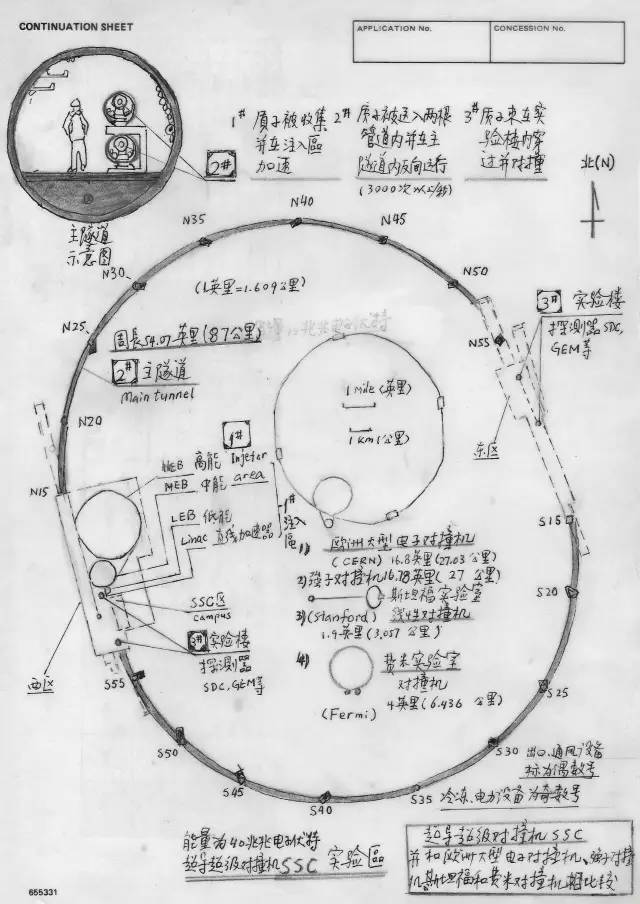 CONTINUATION SHEET
APPLICATION No.
CONCESSION No.
1# 質子被收集
并在注入區
加速
2# 质子被送入两根
管道内并在主
隧道内反向运行
(3000次以上/秒)
3# 质子束在实
验楼内穿
过并对撞
北(N)
2#
主隧道
示意图
N40
N35
N45
N30
N50
N25
N55
N20
N15
(1英里=1.609公里)
周長54.07英里(87公里)
2# 主隧道
Main tunnel
3# 实验楼
探測器SDC,
GEM等
东区
1 Mile (英里)
1 km (公里)
1#
HEB 高能 Injetor
MEB 中能 area
LEB 低能
Linac 直线加速器
1#
注入
區
SSC区
campus
3# 实验楼
探测器
SDC, GEM等
西区
1) 欧洲大型电子对撞机
(CERN) 16.8英里(27.03公里)
2) 強子对撞机16.78英里(27公里)
斯坦福实验室
3) (Stanford) 线性对撞机
1.9英里(3.057公里)
4) 费米实验室
对撞机
(Fermi) 4英里(6.436公里)
S15
S20
S25
S30
S35
S40
S45
S50
S55
出口、通风设备
标为偶数号
冷冻、电力设备为奇数号
能量为40兆兆电子伏特
超导超级对撞机SSC 实验區
超导超级对撞机SSC
并和欧洲大型电子对撞机、强子对撞
机、斯坦福和费米对撞机相比较
655331